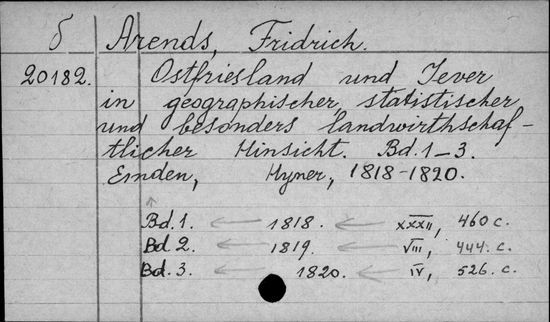 δ Arends, Fridrich.
20182. Ostfriesland und Jever
in geographischer, statistischer
und besonders landwirthschaf-
tlicher Hinsicht. Bd. 1-3.
Emden, Hyner, 1818-1820.
Bd. 1. ← 1818. ← XXXII, 460 c.
Bd. 2. ← 1819. ← VIII, 444. c.
Bd. 3. ← 1820. ← IV, 526. c.